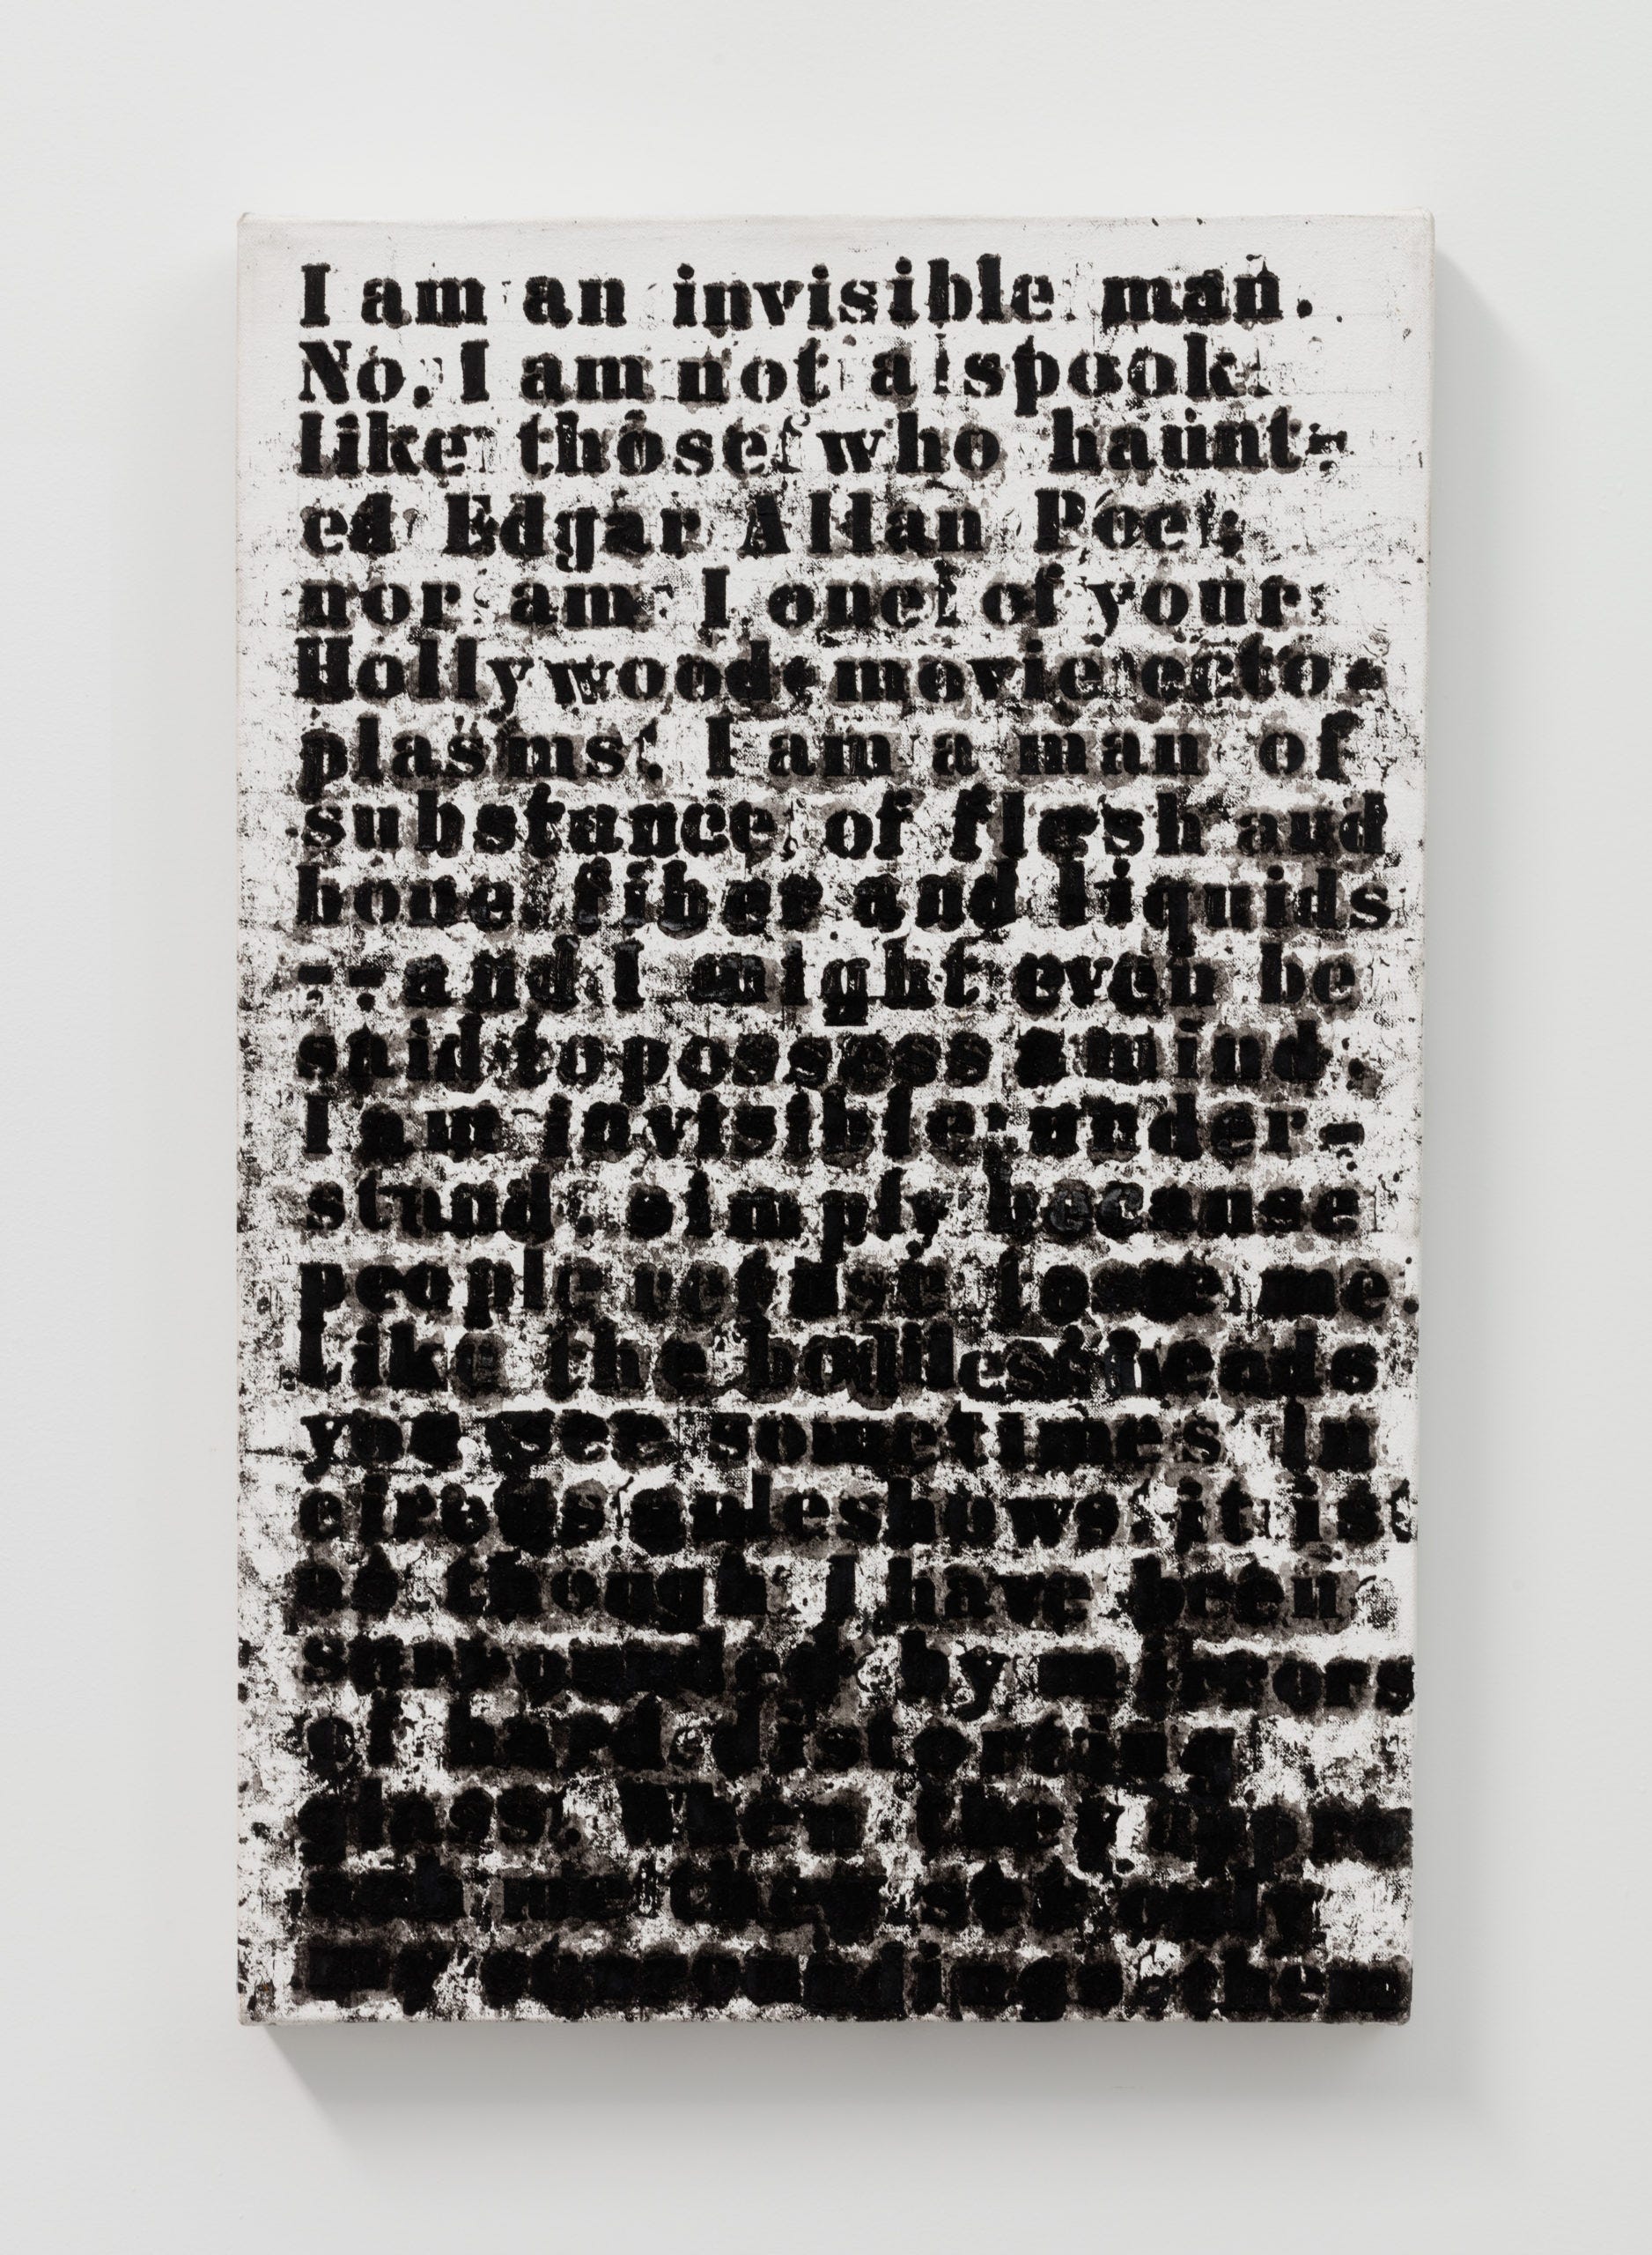 I am an invisible man.
No, I am not a spook
like those who haunt-
ed Edgar Allan Poe;
nor am I one of your
Hollywood-movie ecto-
plasms. I am a man of
substance, of flesh and
bone, fiber and liquids
--and I might even be
said to possess a mind.
I am invisible, under-
stand, simply because
people refuse to see me.
Like the bodiless heads
you see sometimes in
circus sideshows, it is
as though I have been
surrounded by mirrors
of hard, distorting
glass. When they appro
ach me they see only
my surroundings, them